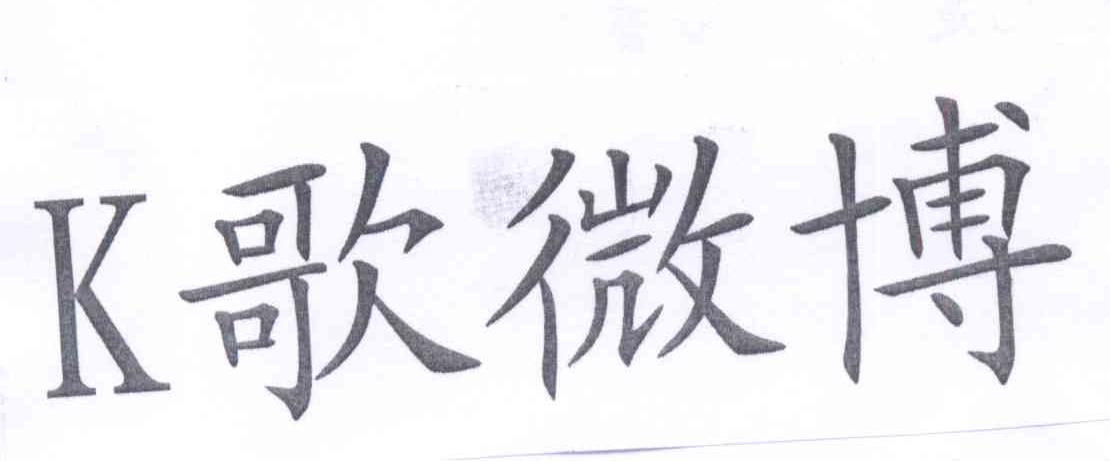 K歌微博